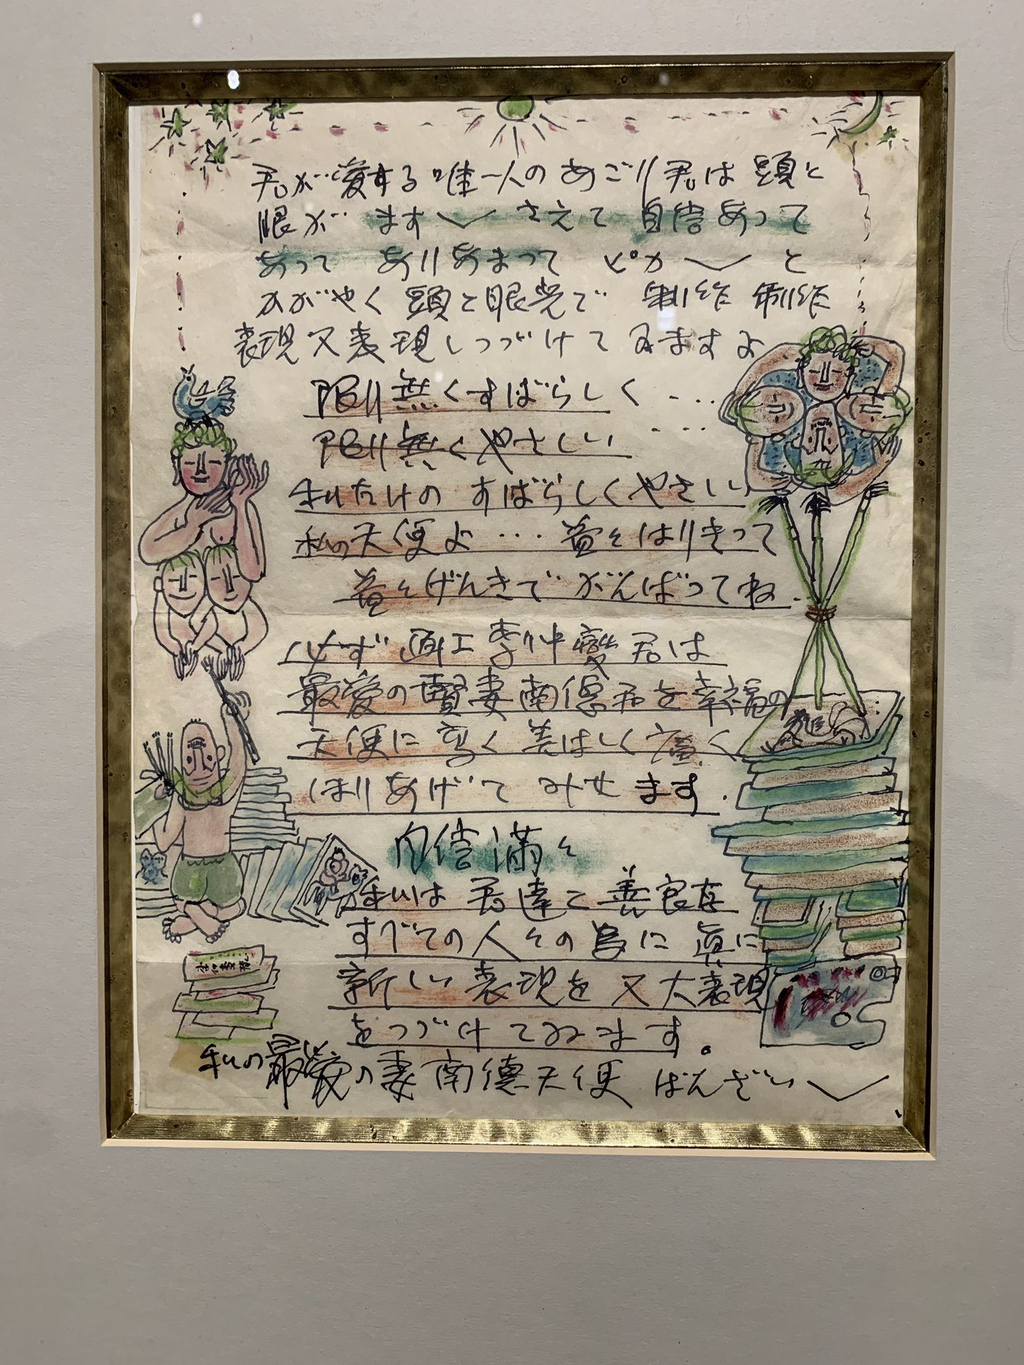 君が愛する唯一人のあごリ君は頭と
眼が ます〱 さえて 自信あって
あって ありあまって ピカ〱 と
かがやく 頭と眼光で 制作 制作
表現又表現しつづけてみますよ
限り無くすばらしく ・・・
限り無くやさしい ・・・
私だけの すばらしくやさしい
私の天使よ ・・・ 益々はりきって
益々げんきで がんばってね.
必ず 画工李仲燮君は
最愛の賢妻南徳君を幸福の
天使に 高く 美しく 広く
ほりあげて みせます.
自信満々
私は 君達と 善良な
すべての人々の為に 真に
新しい表現を 又 大表現
をつづけてみます。
私の最愛の妻南徳天使 ばんざい〱